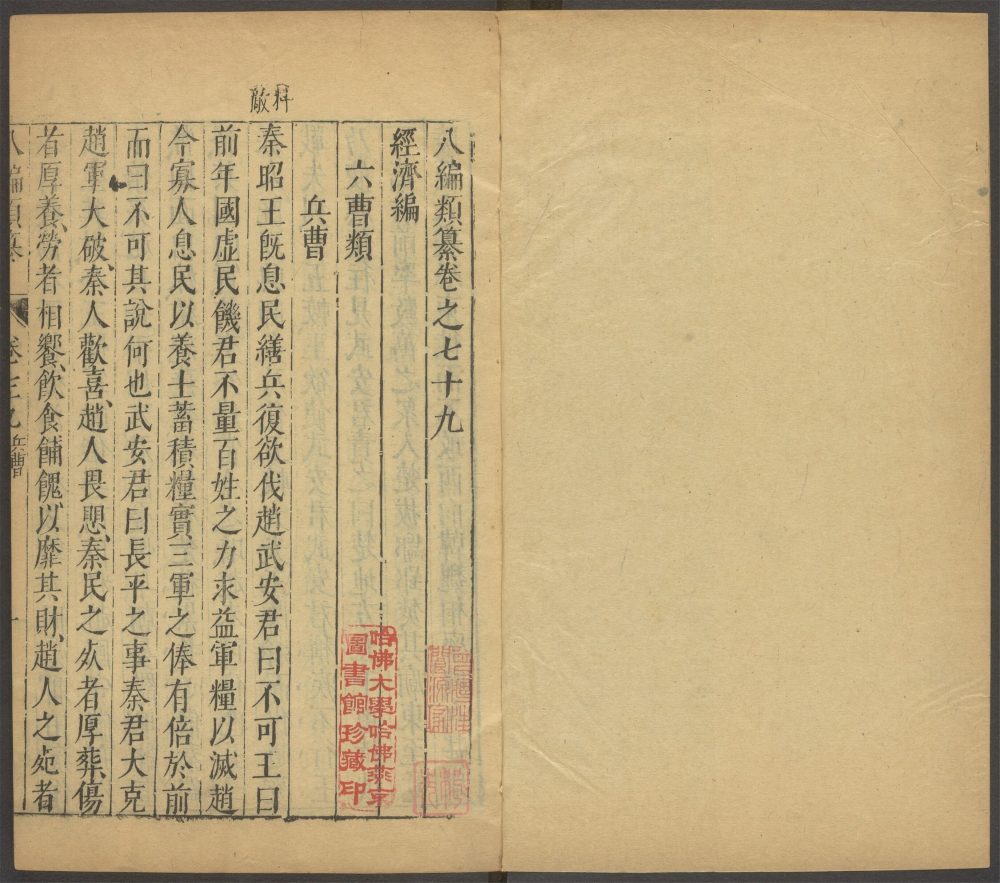 料敵
八編類纂卷之七十九
經濟編
六曹類
兵曹
秦昭王旣息民繕兵復欲伐趙武安君曰不可王曰
前年國虛民饑君不量百姓之力求益軍糧以滅趙
今寡人息民以養士蓄積糧實三軍之俸有倍於前
而曰不可其說何也武安君曰長平之事秦君大克
趙軍大破、秦人歡喜、趙人畏懼、秦民之死者厚葬、傷
者厚養、勞者相饗、飲食餔餽、以靡其財、趙人之死者
八編類纂
兵曹
哈佛大學哈佛燕京
圖書館珍藏印